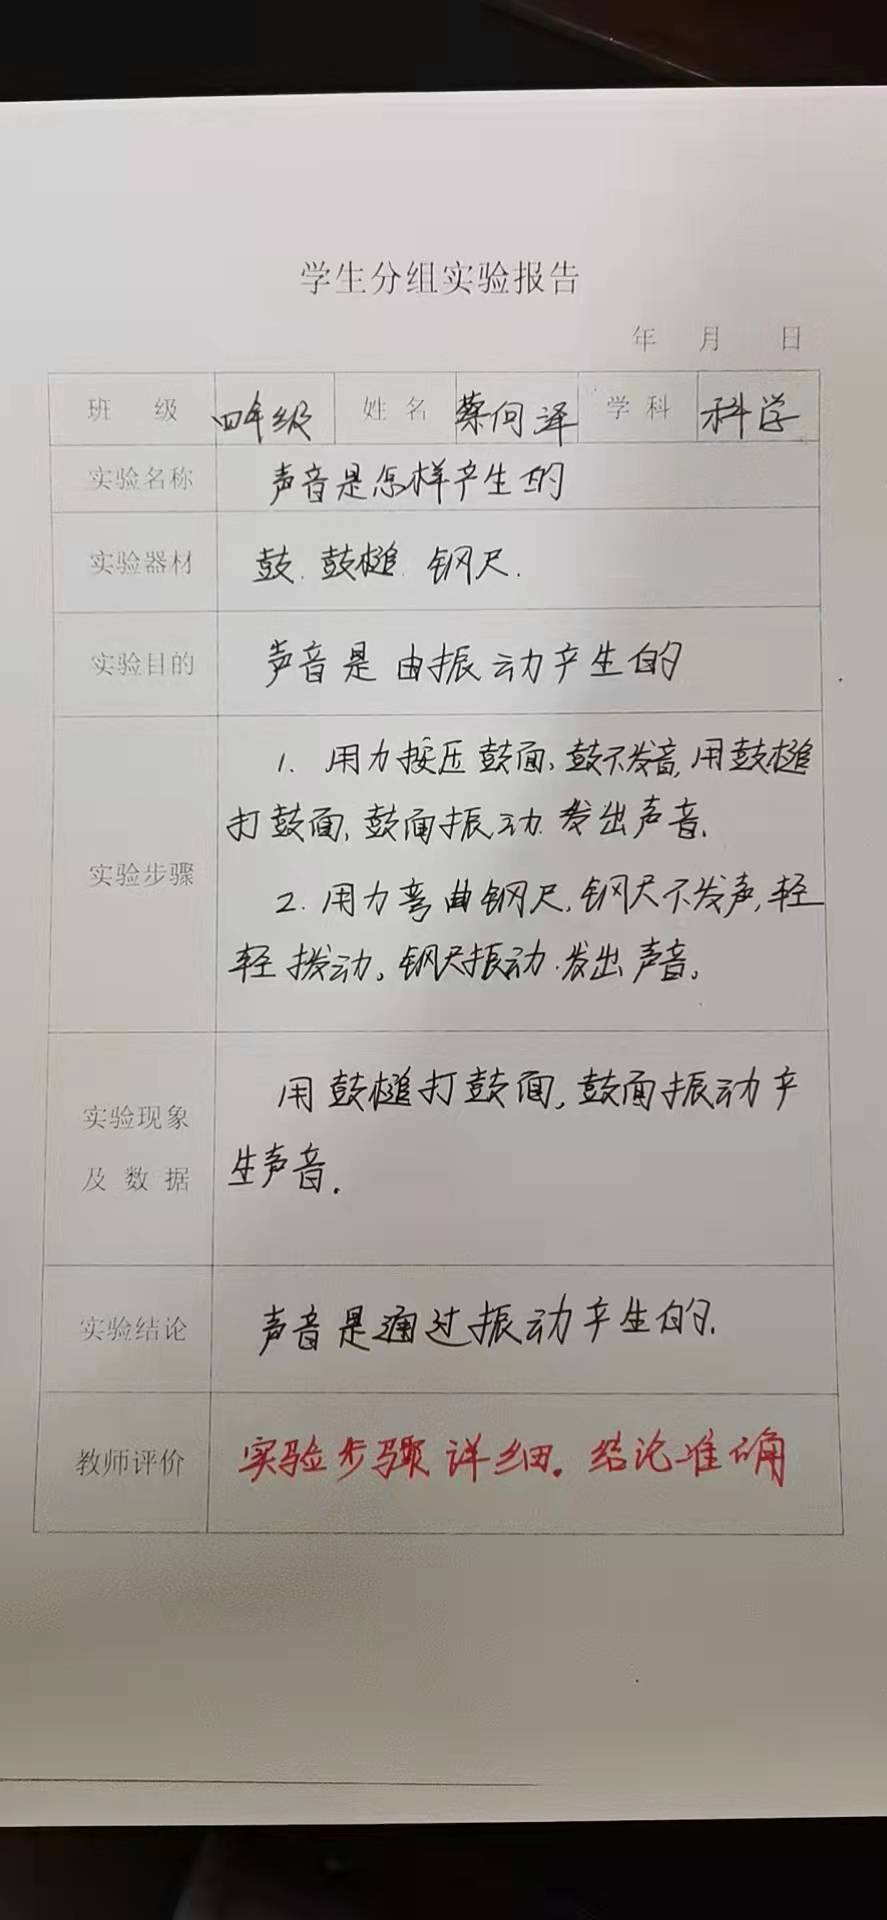 学生分组实验报告
年 月 日
班 级 四年级 姓名 蔡何泽 学科 科学
实验名称 声音是怎样产生的
实验器材 鼓、鼓槌、钢尺.
实验目的 声音是由振动产生的
实验步骤
1. 用力按压鼓面,鼓不发音,用鼓槌
打鼓面,鼓面振动.发出声音.
2. 用力弯曲钢尺,钢尺不发声,轻
轻拨动。钢尺振动.发出声音。
实验现象
及数据
用鼓槌打鼓面,鼓面振动产
生声音.
实验结论 声音是通过振动产生的.
教师评价 实验步骤详细。结论准确